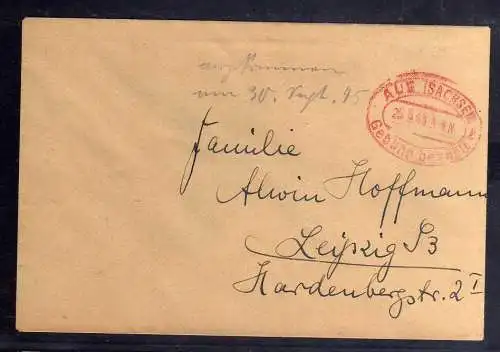 angekommen
am 30. Sept. 45
AUE (SACHSEN)
Gebühr bezahlt
Familie
Alwin Hoffmann
Leipzig S3
Hardenbergstr. 2 I